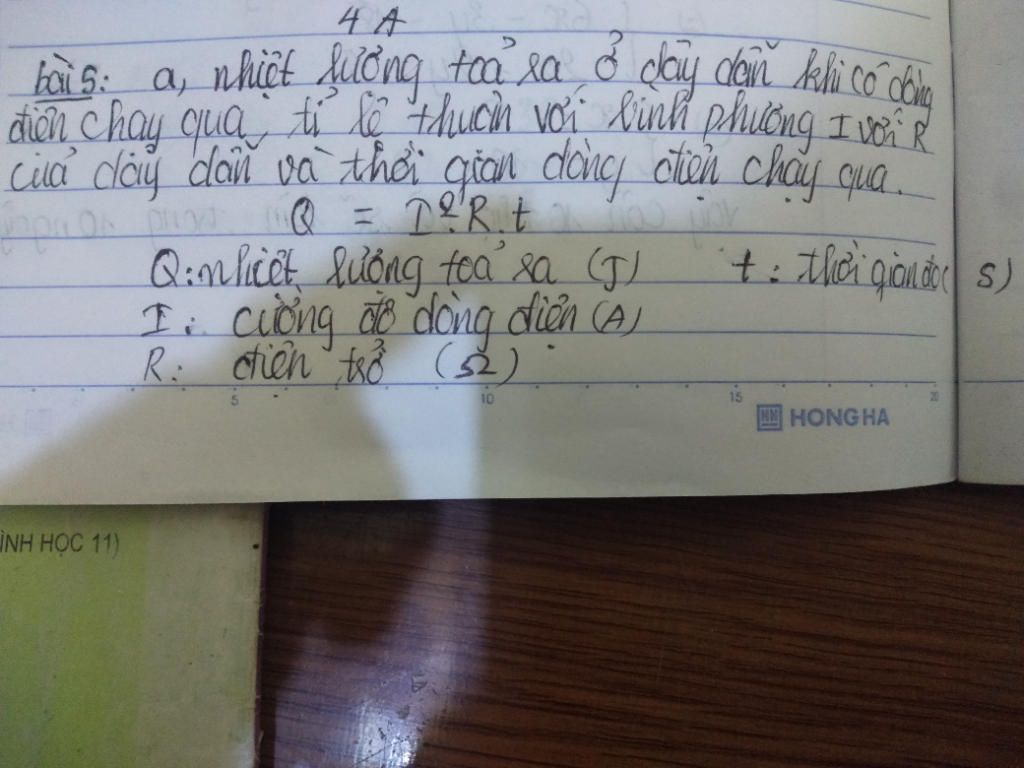 4 A
bài 5: a, nhiệt lượng toả ra ở dây dẫn khi có dòng
điện chạy qua, tỉ lệ thuận với bình phương I với R
của dây dẫn và thời gian dòng điện chạy qua.
Q = I². R. t
Q: nhiệt lượng toả ra (J) t : thời gian đo ( s)
I : cường độ dòng điện (A)
R: điện trở (Ω)
5 10 15 20
HH HONG HA
ÌNH HỌC 11)